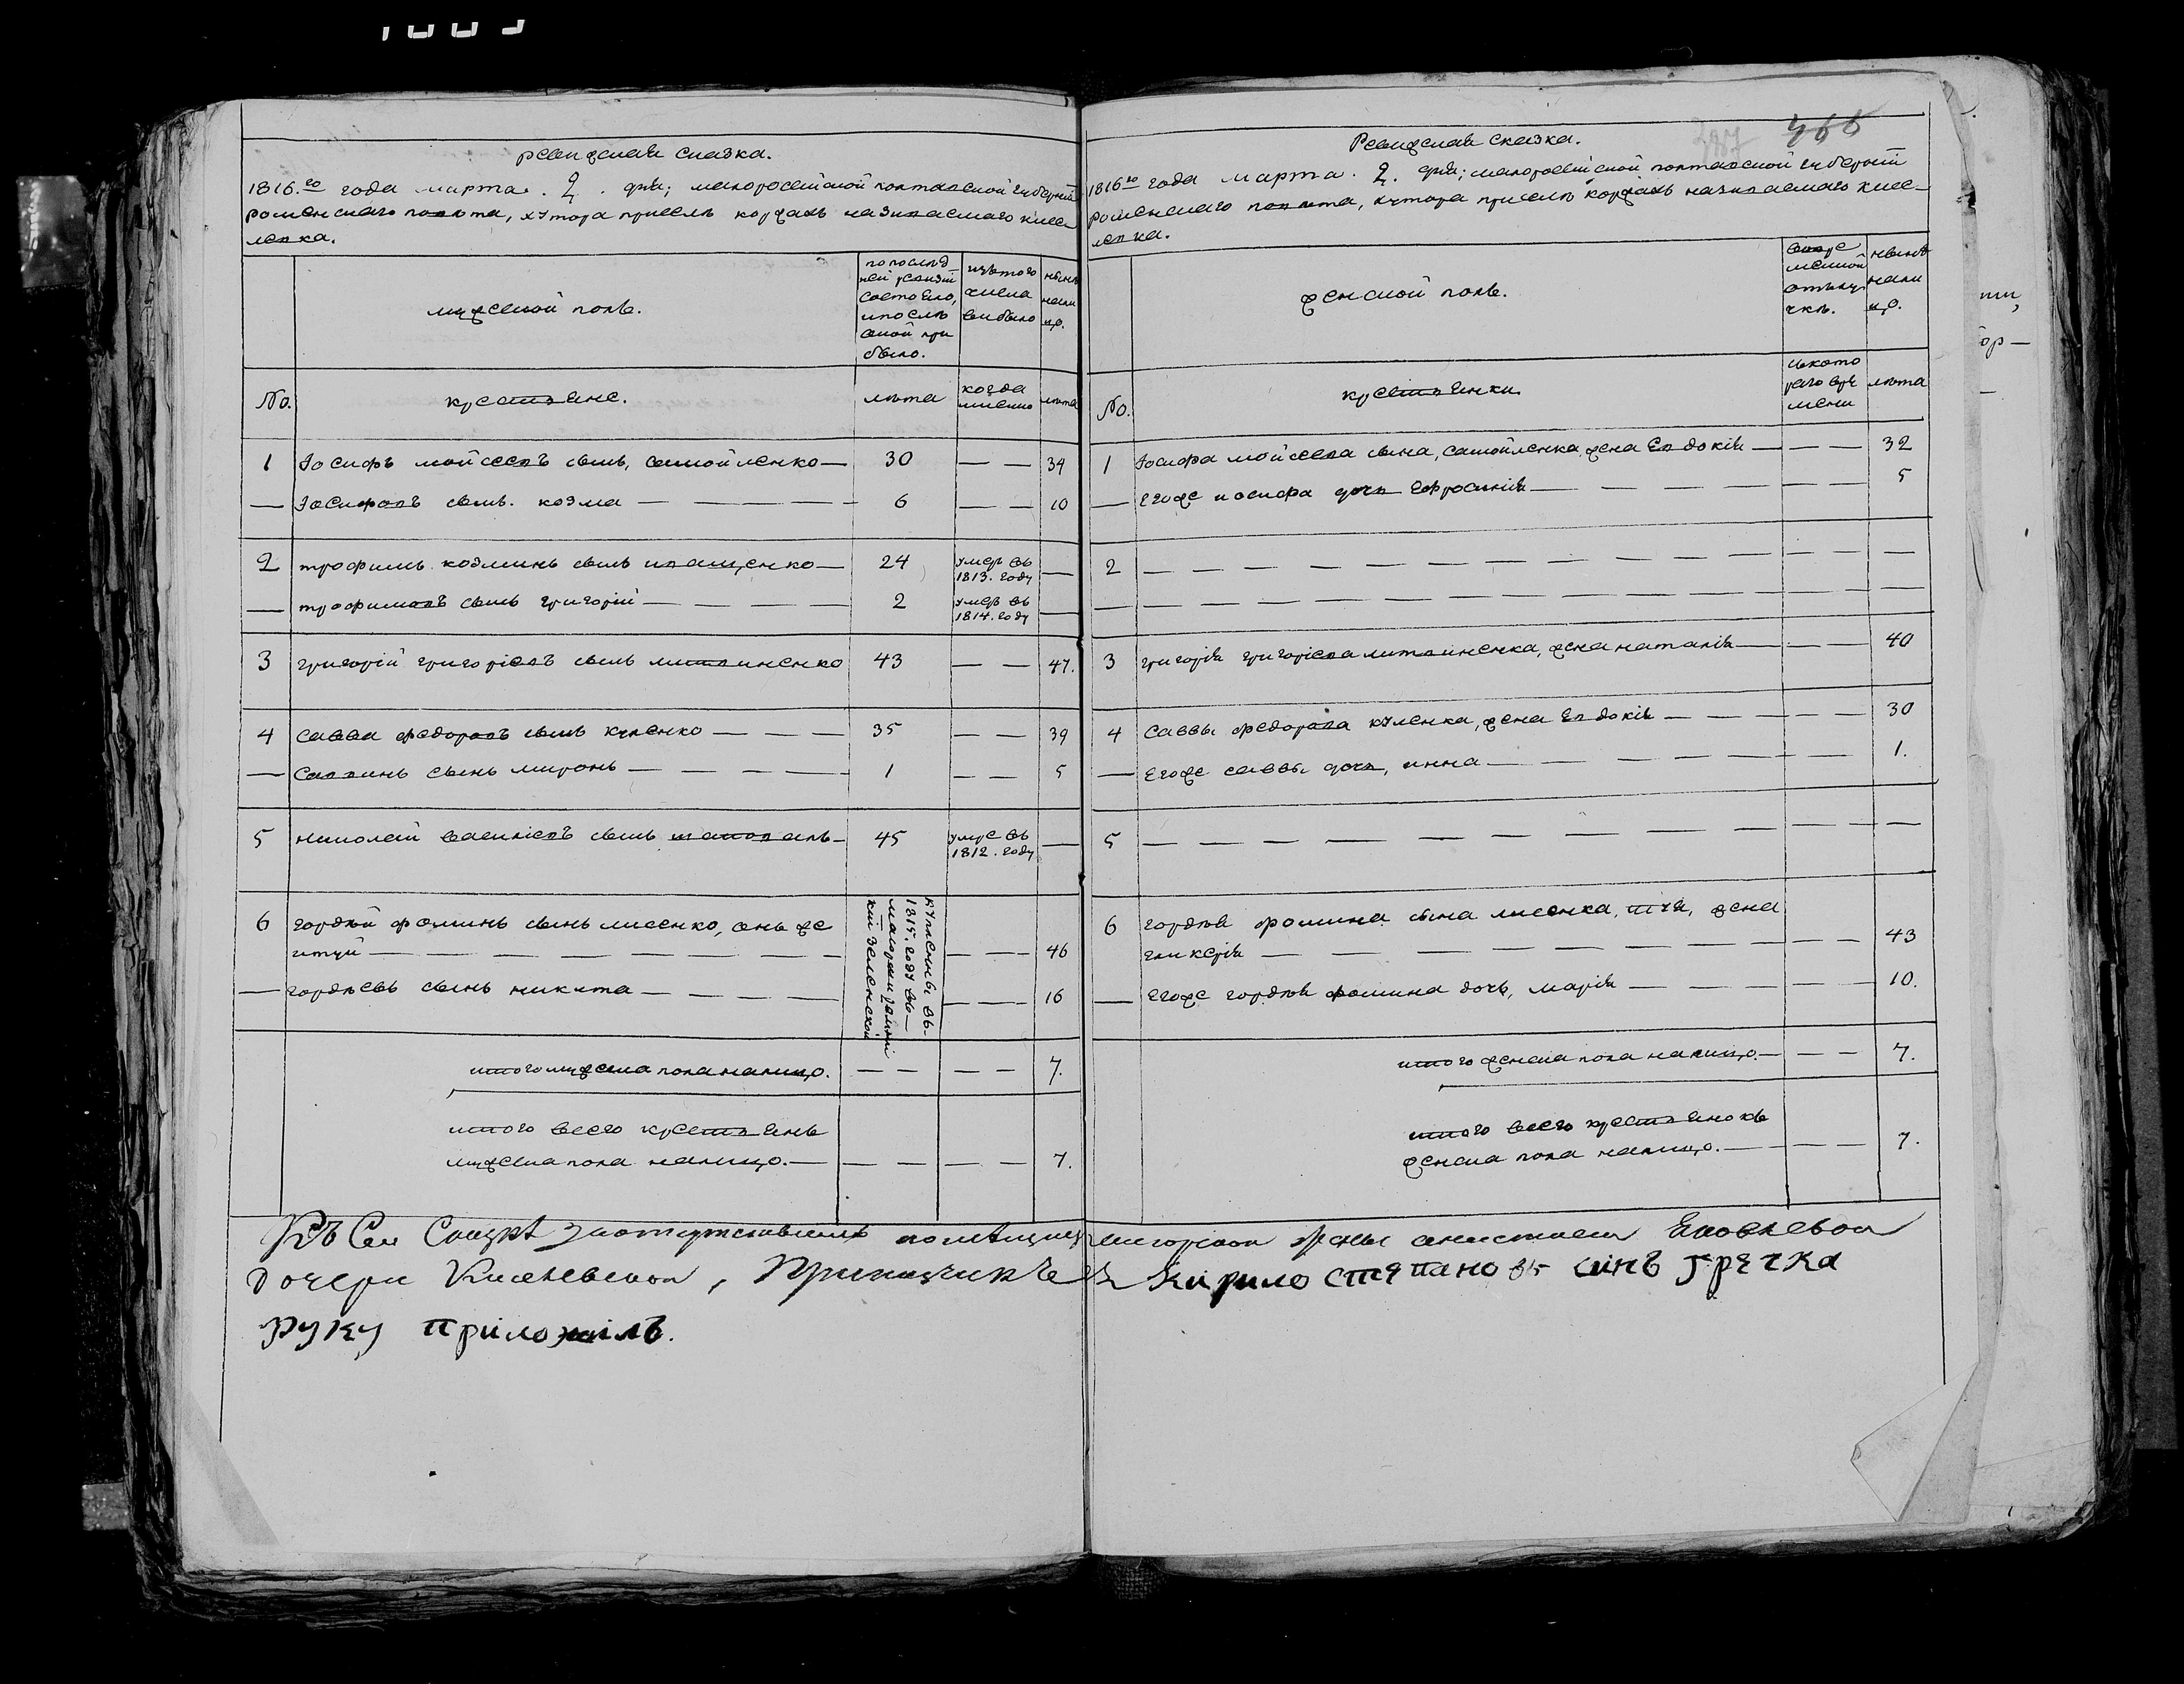 Ревижская сказка.
1816.го года марта. 2. дня; малоросийской полтавской губерніи
роменскаго повѣта, хутора прислѣ коржахъ называемаго кисе
левка.
мужеской полъ.
по послѣд
ней ревизіи
состояло,
и послѣ
оной при
было.
изъ того
числа
выбыло
нынѣ
нали
цо.
No.
крестьяне.
лѣта
когда
именно
лѣта
1 Іосифъ мойсеевъ сынъ, самойленко — 30 — — 34
— Іосифовъ сынъ. козма — — — — 6 — — 10
2 трофимъ козминъ сынъ иващенко — 24 умеръ въ 1813. году —
— трофимовъ сынъ григорій — — — — 2 умеръ въ 1814. году —
3 григорій григоріевъ сынъ литвиненко 43 — — 47.
4 савва федоровъ сынъ куленко — — — 35 — — 39
— саввинъ сынъ миронъ — — — — 1 — — 5
5 николай василіевъ сынъ шаповалъ — 45 умре въ 1812. году —
6 гордѣй фоминъ сынъ лисенко, онъ же
итуй — — — — — — — — — — 46
— гордѣевъ сынъ никита — — — — — — 16
куплены въ
1815. году въ —
маіорши
зеленской
итого мужеска пола налицо. — — — — 7.
итого всего крестьянъ
мужеска пола налицо. — — — — — 7.
Ревижская сказка.
466
1816го года марта. 2. дня; малоросійской полтавской губерніи
роменскаго повѣта, хутора прислѣ коржахъ называемаго кисе—
левка.
женской полъ.
во вре
менной
отлу
чкѣ.
нынѣ
нали
цо.
No.
крестьянки.
съ кото
раго вре
мени
лѣта
1 Іосифа мойсеева сына, самойленка, жена Евдокія — — — 32
— Егоже иосифа дочь Ефросинія — — — — — — 5
2 — — — — — — — — — —
— — — — — — — — — — —
3 григорія григоріева литвиненка, жена наталія — — — 40
4 саввы федорова куленка, жена Евдокія — — — — — 30
— Егоже саввы дочь, анна — — — — — — 1.
5 — — — — — — — — — —
6 гордѣя фомина сына лисенка, жена
гликерія — — — — — — — — 43
— Егоже гордѣя фомина дочь, марія — — — — — 10.
итого женска пола налицо. — — — 7.
итого всего крестьянокъ
женска пола налицо. — — — 7.
Къ Сей Сказкѣ за отсутствіемъ помѣщицы маіорской жены анастасіи Яковлевой
Дочери Киселевской, Прикащикъ Ея Кирило степановъ синъ гречка
руку приложилъ.